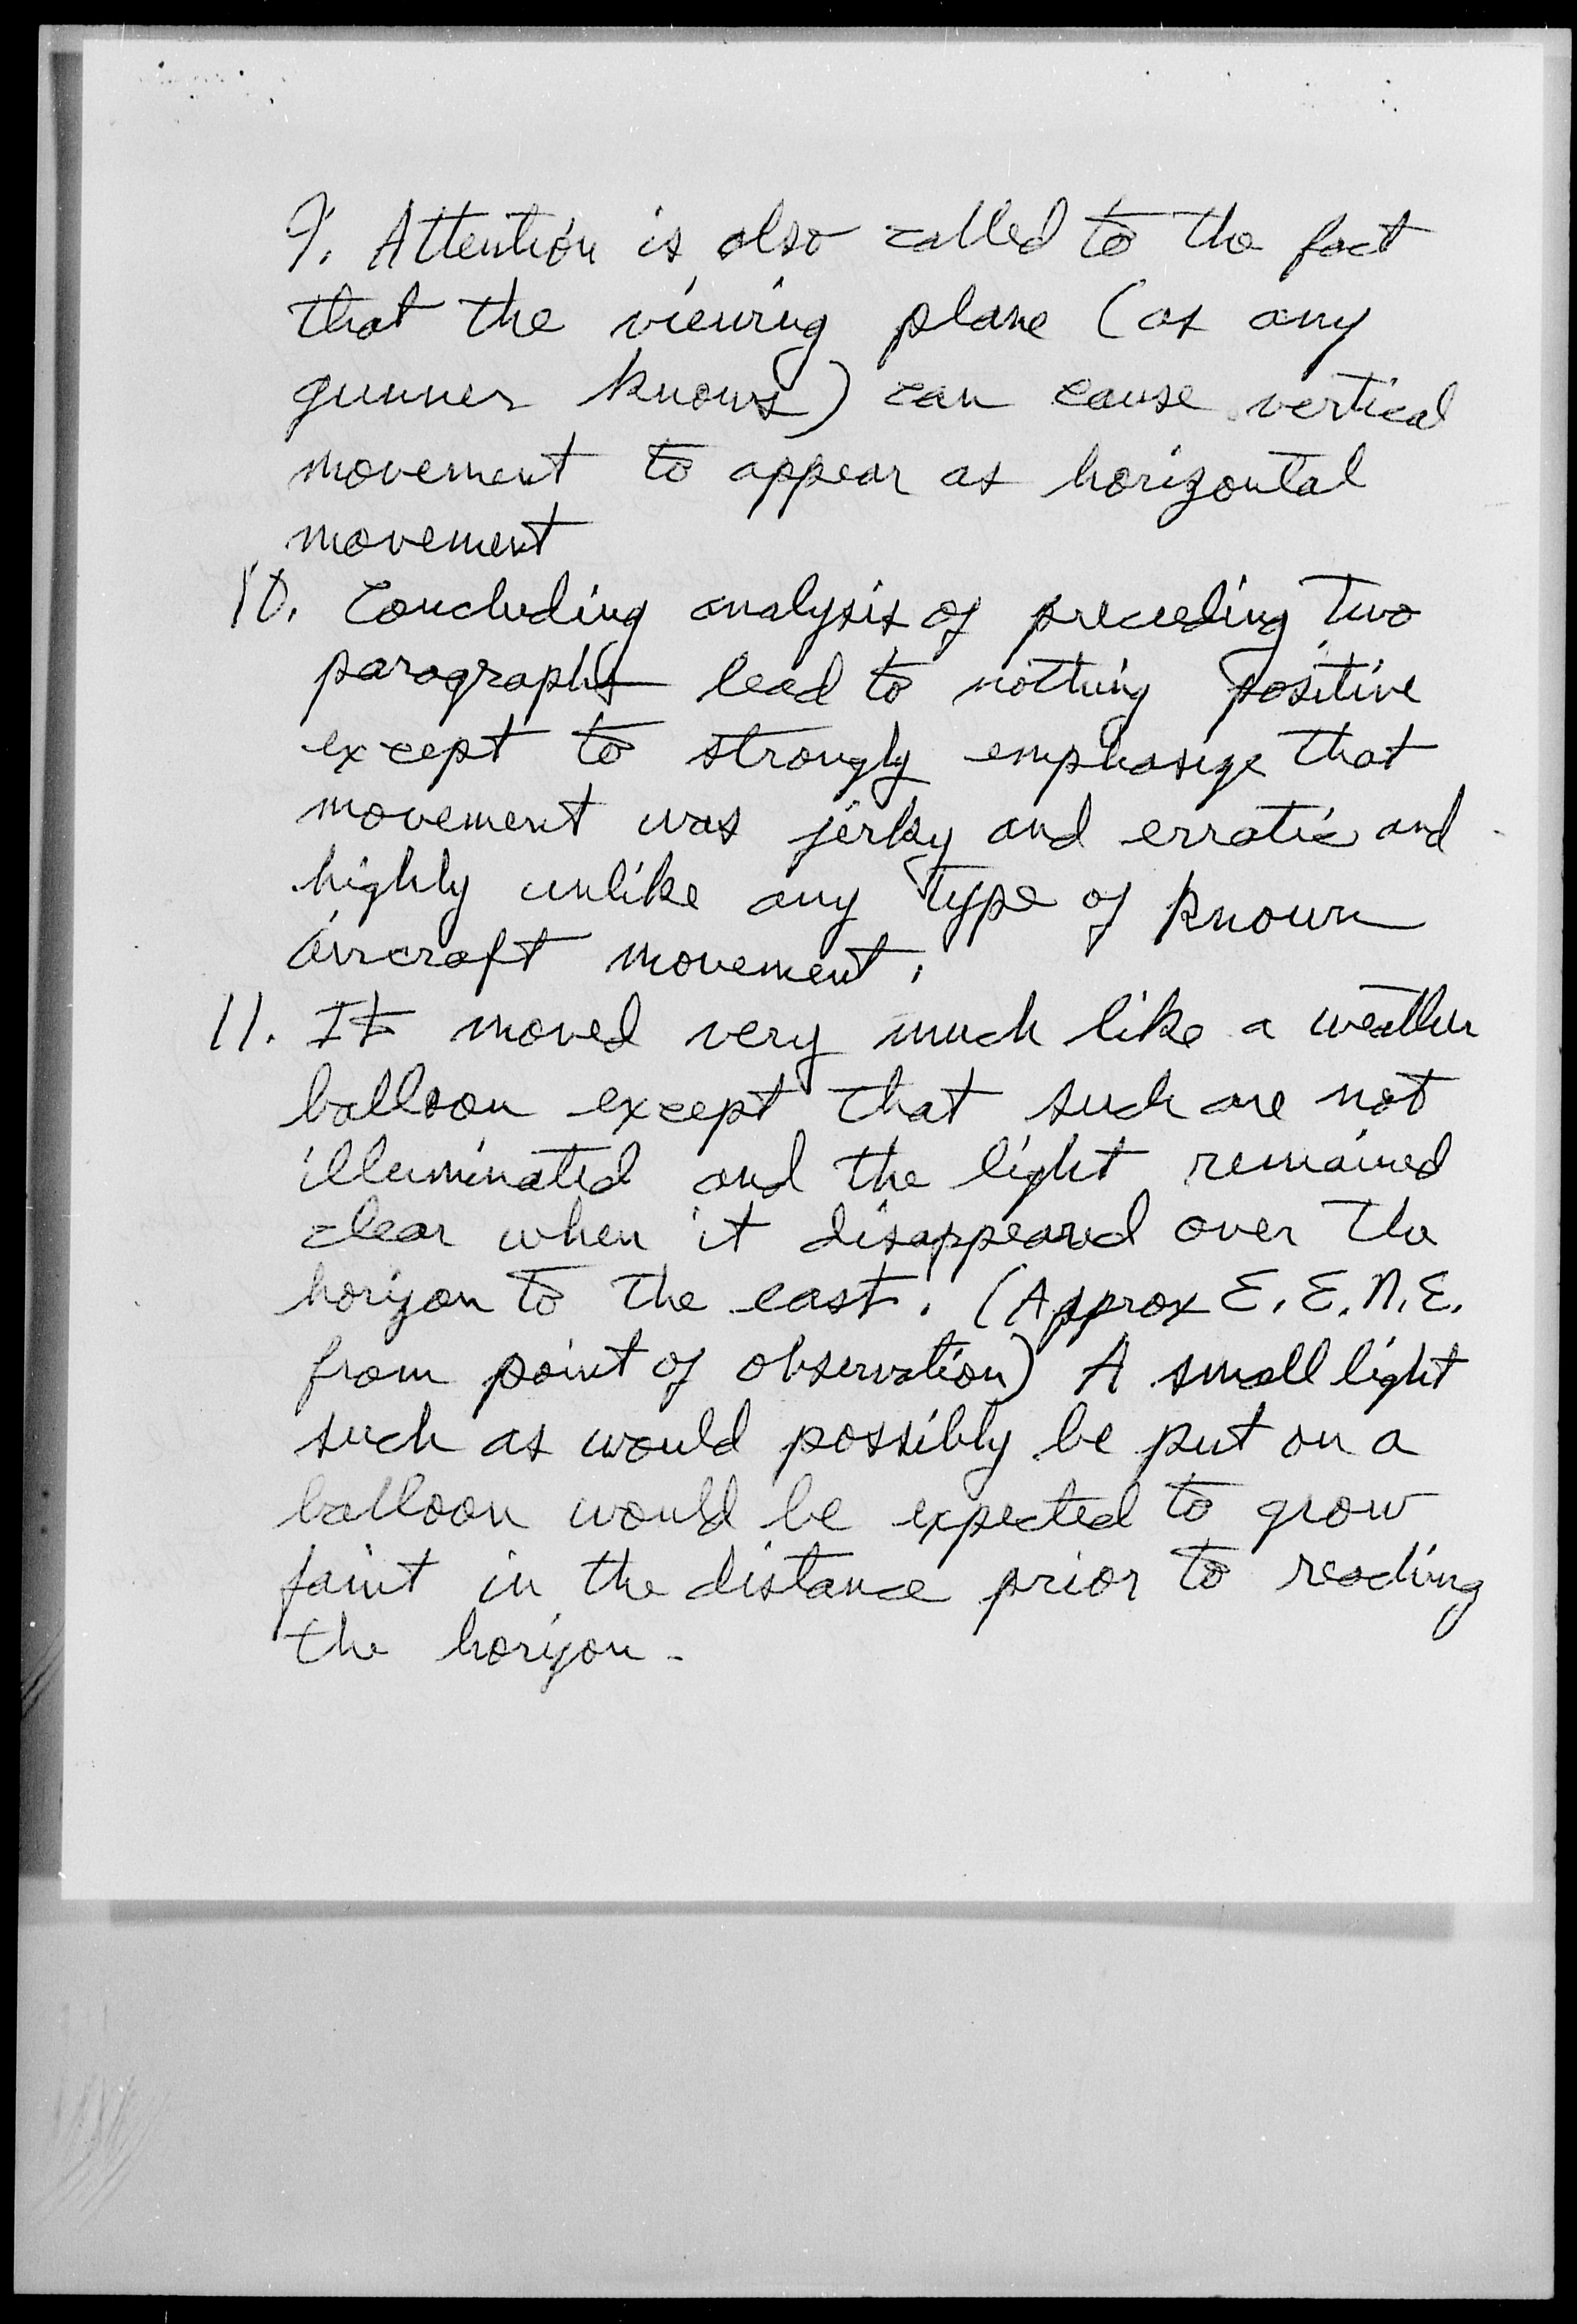 9. Attention is also called to the fact
that the viewing plane (as any
gunner knows) can cause vertical
movement to appear as horizontal
movement
10. Concluding analysis of preceeding two
paragraphs lead to nothing positive
except to strongly emphasize that
movement was jerky and erratic and
highly unlike any type of known
aircraft movement.
11. It moved very much like a weather
balloon except that such are not
illuminated and the light remained
clear when it disappeared over the
horizon to the east. (Approx E.E.N.E.
from point of observation) A small light
such as would possibly be put on a
balloon would be expected to grow
faint in the distance prior to reaching
the horizon.